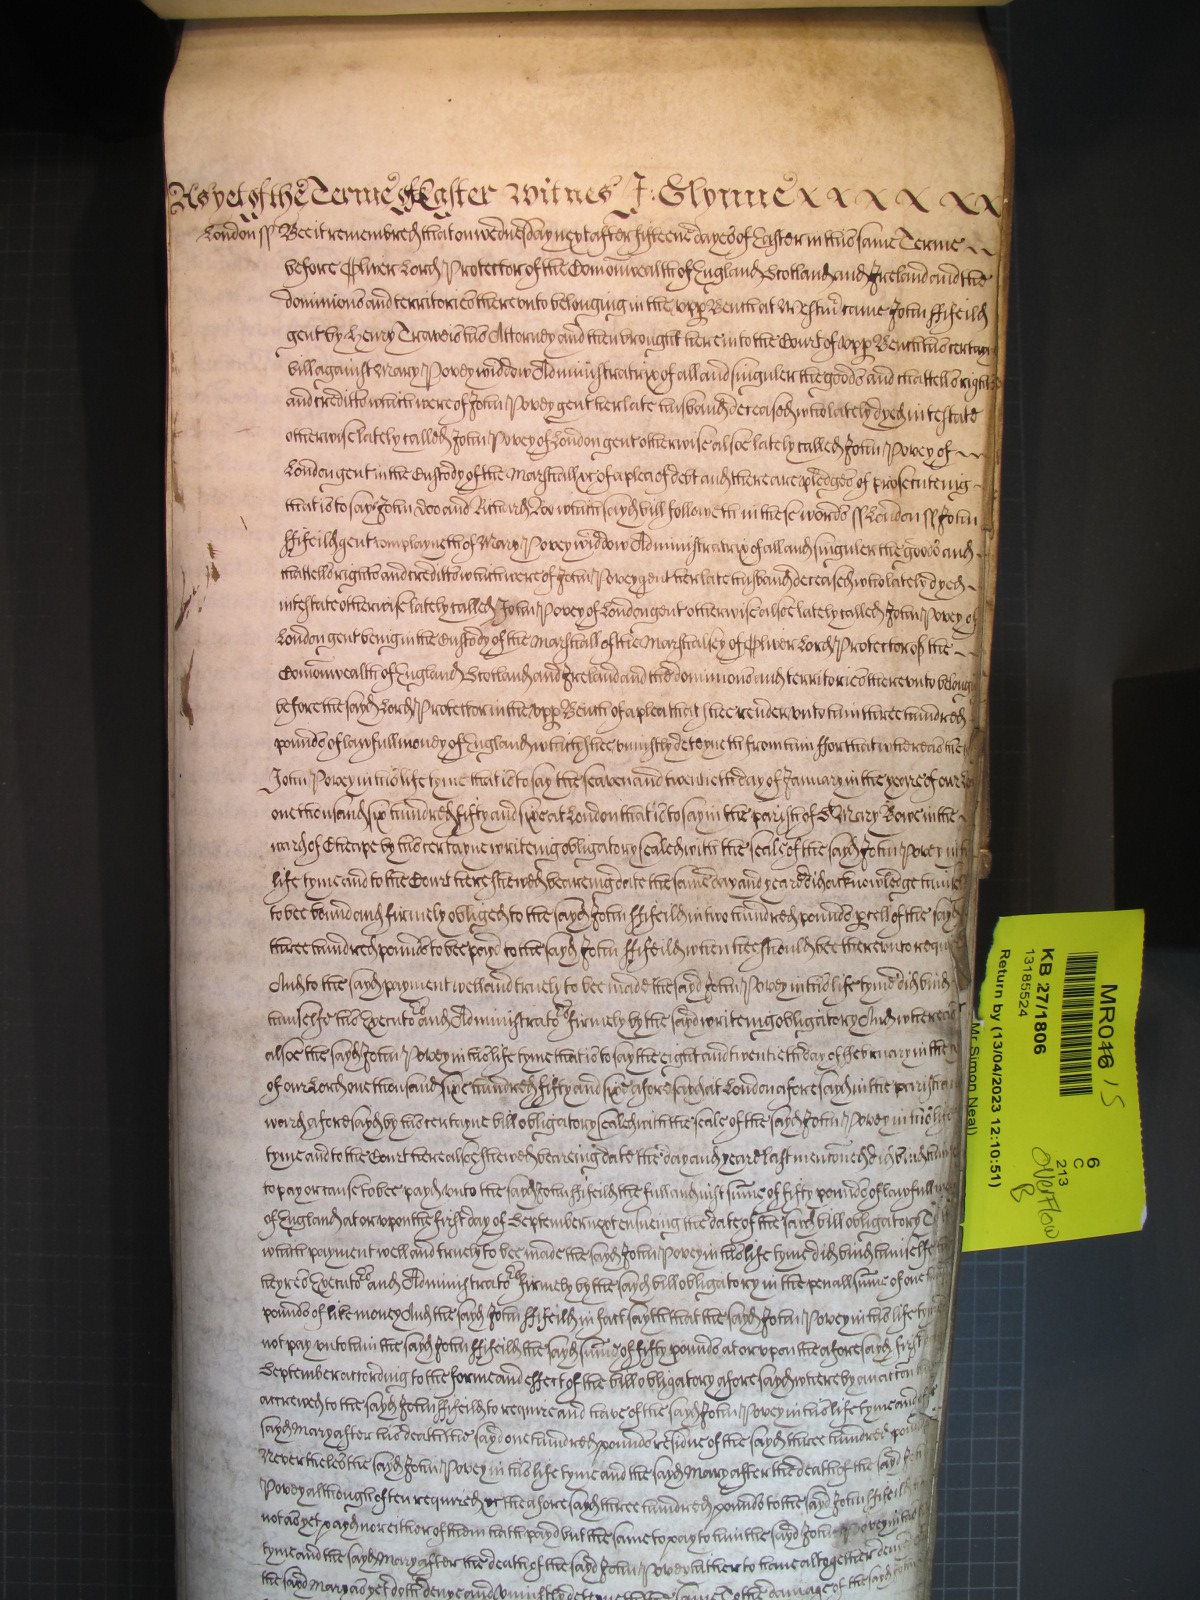 As yet of the Terme of Easter Witnes J: Glynne x x x x xx
London ss Bee it remembred that on wednesday next after fifteene dayes of Easter in this same Terme
before Oliver Lord Protector of the Comonwealth of England Scotland and Ireland and the
dominions and territories thereunto belonging in the upp Bench at Westm came John Fifeild
gent by Henry Travers his Attorney and then brought here into the Court of upp Bench his certaine
bill against Mary Povey widdow Administratrix of all and singuler the goods and chattells rights
and creditts which were of John Povey gent her late husband deceased who lately dyed intestate
otherwise lately called John Povey of London gent otherwise alsoe lately called John Povey of
London gent in the Custody of the Marshall &c of a plea of debt and there are pledges of prosecuteing
that is to say John Doo and Richard Roo which sayd bill followeth in these words ss London ss John
Fifeild gent complayneth of Mary Povey widdow Administratrix of all and singuler the goods and
chattells rights and creditts which were of John Povey gent her late husband deceased who lately dyed
intestate otherwise lately called John Povey of London gent otherwise alsoe lately called John Povey of
London gent being in the Custody of the Marshall of the Marshalsey of Oliver Lord Protector of the
Comonwealth of England Scotland and Ireland and the dominions and territories thereunto belong
before the sayd Lord Protector in the upp Bench of a plea that shee render unto him three hundred
pounds of lawfull money of England which shee uniustly deteyneth from him for that whereas the
John Povey in his life tyme that is to say the seaven and twentieth day of January in the yeare of our Lo
one thousand six hundred fifty and six at London that is to say in the parish of St Mary Bowe in the
ward of Cheape by his certayne writeing obligatory sealed with the seale of the sayd John Povey in his
life tyme and to the Court here shewed beareing date the same day and yeare did acknowledge himself
to bee bound and firmely obliged to the sayd John Fifeild in two hundred pounds pcell of the sayd
three hundred pounds to bee payd to the sayd John Fifeild when hee should bee thereunto requi
And to the sayd payment well and truely to bee made the sayd John Povey in his life tyme did bind
himselfe his Executors and Administrators firmely by the sayd writeing obligatory And whereas
alsoe the sayd John Povey in his life tyme that is to say the eight and twentieth day of February in the
of our Lord one thousand sixe hundred fifty and sixe aforesayd at London aforesayd in the parish and
ward aforesayd by his certayne bill obligatory sealed with the seale of the sayd John Povey in his life
tyme and to the Court here alsoe shewed beareing date the day and yeare last mentoned did bind him
to pay or cause to bee payd unto the sayd John Fifeild the full and iust sume of fifty pounds of lawfull
of England at or upon the first day of September next ensueing the date of the sayd bill obligatory
which payment well and truely to bee made the sayd John Povey in his life tyme did bind himselfe
heyres Executors and Administrators firmely by the sayd bill obligatory in the penall sume of one
pounds of like money And the sayd John Fifeild in fact sayth that the sayd John Povey in his life tyme
not pay unto him the sayd John Fifeild the sayd sume of fifty pounds at or upon the aforesayd first
September according to the forme and effect of the bill obligatory aforesayd whereby an accon
accrewed to the sayd John Fifeild to require and have of the sayd John Povey in his life tyme and of
sayd Mary after his death the sayd one hundred pounds residue of the sayd three hundred pounds
Neverthelesse the sayd John Povey in his life tyme and the sayd Mary after the death of the sayd John
Povey although often required &c the aforesayd three hundred pounds to the sayd John Fifeild
not as yet payd nor either of them hath payd but the same to pay to him the sayd John Povey in his
tyme and the sayd Mary after the death of the sayd John Povey hitherto have altogether denied
the sayd Mary as yet doth denye and uniustly deteyneth the same To the damage of the sayd John
MR016 / S
KB 27/1806
13185524
Return by (13/04/2023 12:10:51)
Mr Simon Neal)
6
C
213
Overflow
B